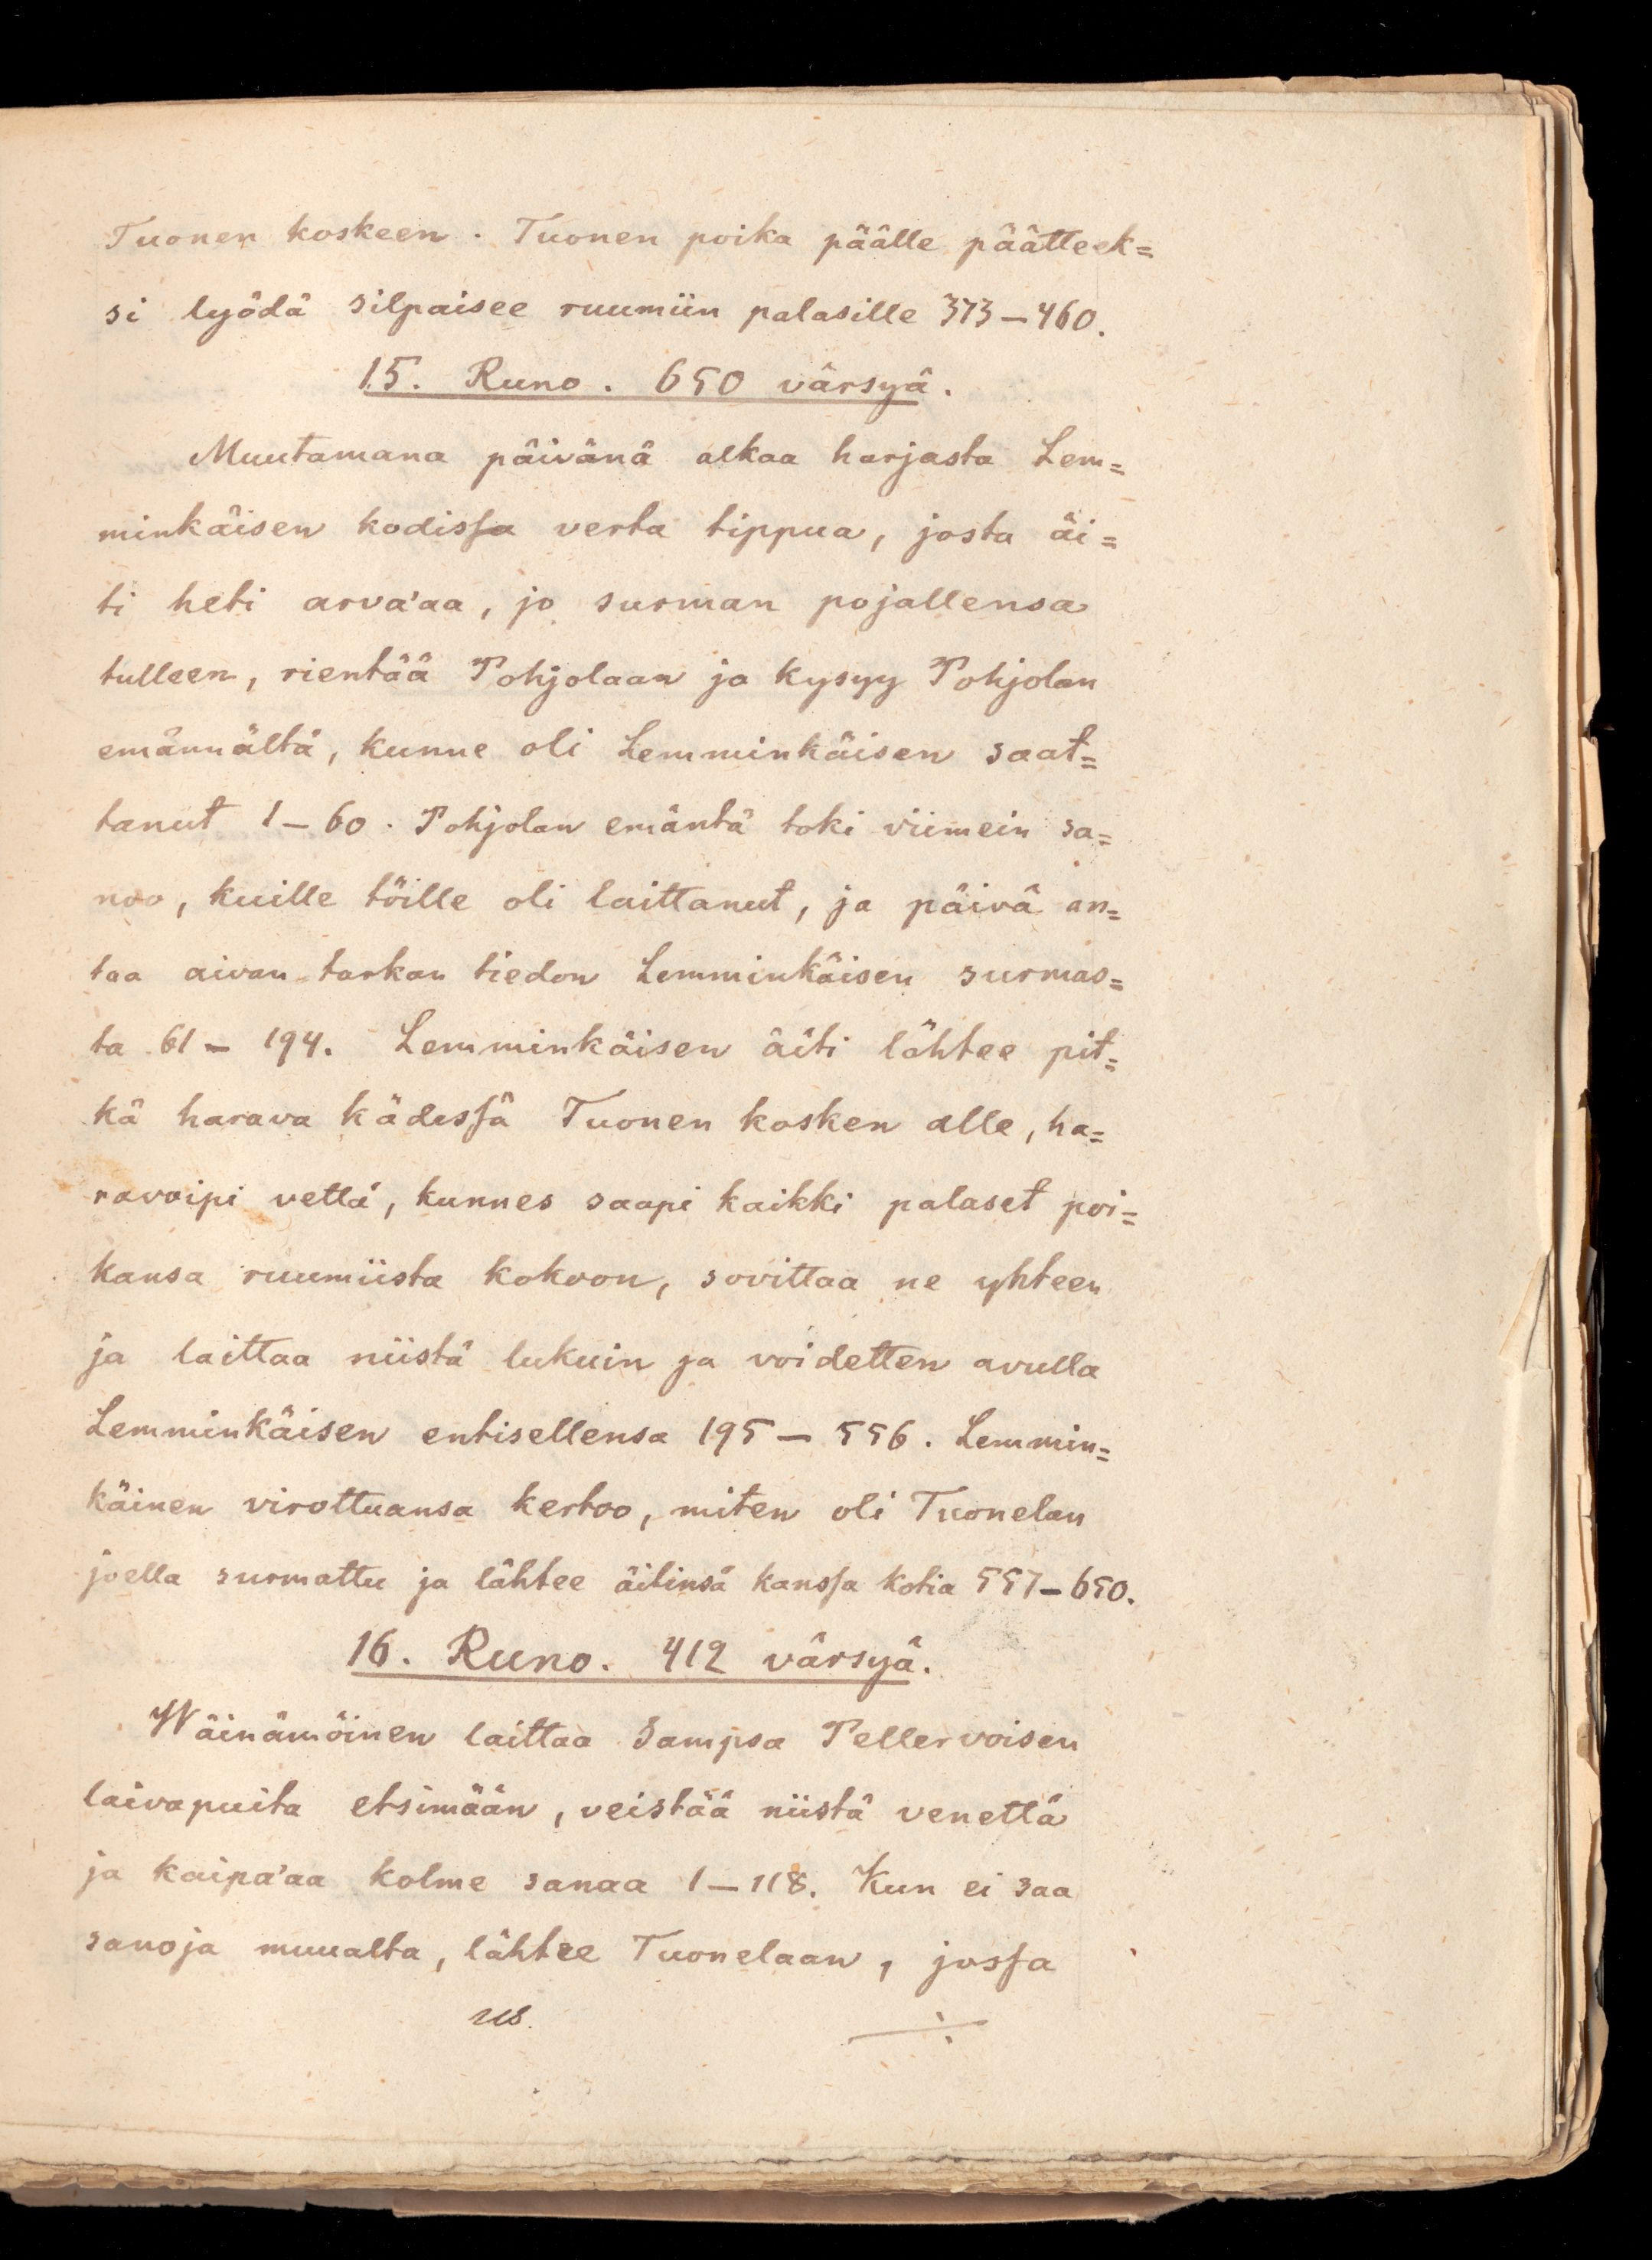 Tuonen koskeen. Tuonen poika päälle päätteek=
si lyödä silpaisee ruumiin palasille 373–460.
15. Runo. 650 värsyä.
Muutamana päivänä alkaa harjasta Lem=
minkäisen kodissa verta tippua, josta äi=
ti heti arva'aa, jo surman pojallensa
tulleen, rientää Pohjolaan ja kysyy Pohjolan
emännältä, kunne oli Lemminkäisen saat=
tanut 1–60. Pohjolan emäntä toki viimein sa=
noo, kuille töille oli laittanut, ja päivä an=
taa aivan tarkan tiedon Lemminkäisen surmas=
ta 61–194. Lemminkäisen äiti lähtee pit=
kä harava kädessä Tuonen kosken alle, ha=
ravoipi vettä, kunnes saapi kaikki palaset poi=
kansa ruumiista kokoon, sovittaa ne yhteen
ja laittaa niistä lukuin ja voidetten avulla
Lemminkäisen entisellensa 195–556. Lemmin=
käinen virottuansa kertoo, miten oli Tuonelan
joella surmattu ja lähtee äitinsä kanssa kotia 557–650.
16. Runo. 412 värsyä.
Wäinämöinen laittaa Sampsa Pellervoisen
laivapuita etsimään, veistää niistä venettä
ja kaipa'aa kolme sanaa 1–118. Kun ei saa
sanoja muualta, lähtee Tuonelaan, jossa